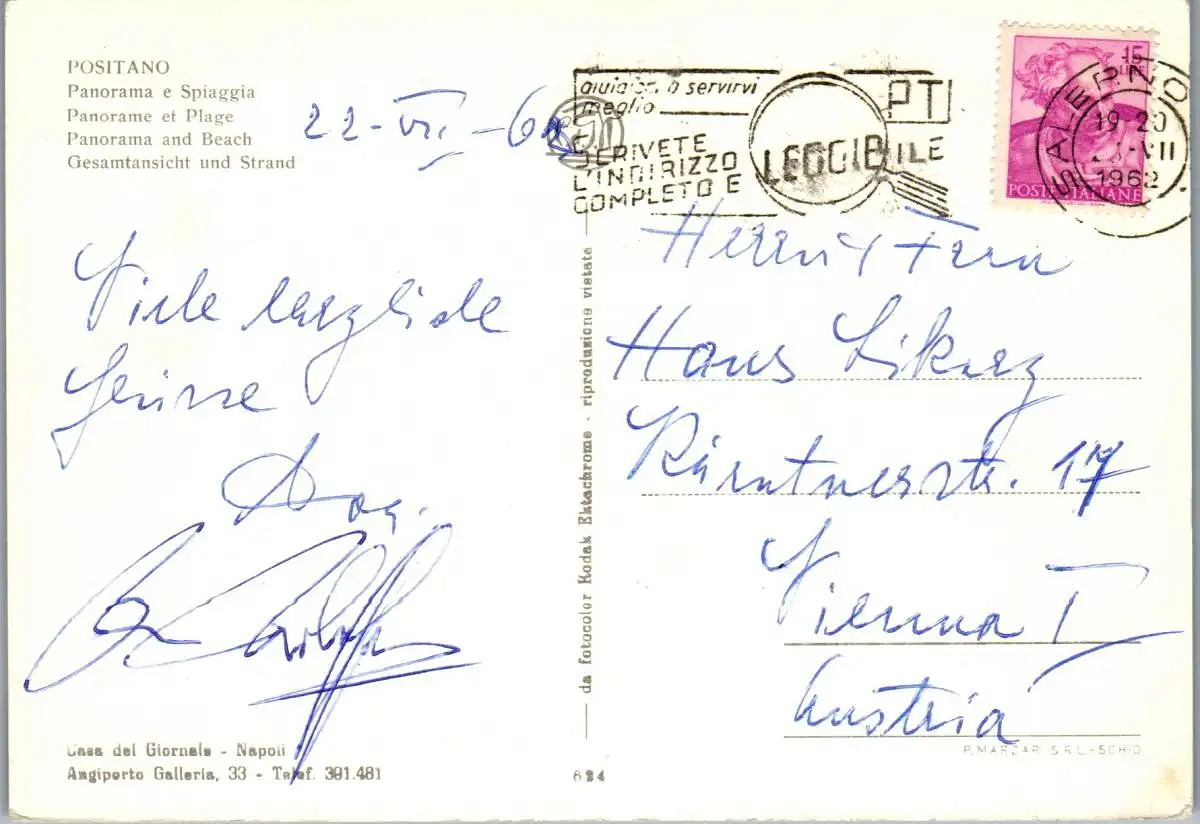 POSITANO
Panorama e Spiaggia
Panorame et Plage
Panorama and Beach
Gesamtansicht und Strand
22-VII-62
aiutateci a servirvi
meglio
SCRIVETE
L'INDIRIZZO
COMPLETO E
LEGGIBILE
PT
15
LIRE
POSTE ITALIANE
SALERNO
19-20
VII
1962
Viele herzliche
Grüsse
Herrn u Frau
Hans Likarz
Kärntnerstr. 17
Vienna I
Austria
da fotocolor Kodak Ektachrome - riproduzione vietata
Casa del Giornale - Napoli
Angiporto Galleria, 33 - Telef. 391.481
624
P. MARZARI S.R.L.-SCHIO